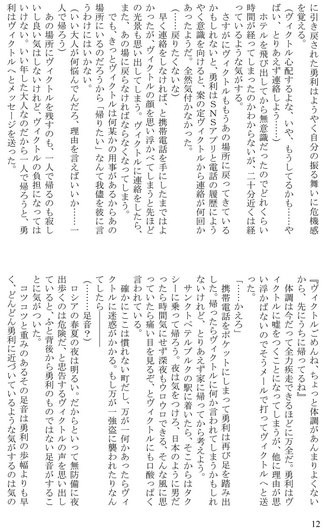 に引き戻された勇利はようやく自分の振る舞いに危機感
を覚える。
（ヴィクトル心配するよな、いや、もうしてるかも……や
ばい、とりあえず連絡しよう……）
ホテルを飛び出してから無意識だったのでどれくらい
時が経ってしまったのかわからないが、二十分近くは経
っているような気がする。
さすがにヴィクトルももうあの場所に戻ってきている
かもしれないと、勇利はSNSアプリと電話の履歴によう
やく意識を向けると、案の定ヴィクトルから連絡が何回か
あったようだ。全然気付かなかった。
（……戻りたくないな）
早く連絡をしなければ、と携帯電話を手にしたまではよ
かったが、ヴィクトルの顔を思い浮かべてしまうと先ほど
の光景も思い出してしまう。ヴィクトルに連絡をしたら、
また、あの場に戻らなければならなくなってしまう。
でも、きっとヴィクトルは何某かの用事があるからあの
場所にいるのだろうから「帰りたい」なんて我儘を彼に言
うわけにはいかない。
（いい大人が何悩んでんだろ、理由を言えばいいか……一
人で帰ろう）
あの場所にヴィクトルを残すのも、一人で帰るのも
いし良い気はしないけれど、ヴィクトルの負担になっては
いけない。いい年した大人なのだから一人で帰ろうと、勇
利はヴィクトルへとメッセージを送った。
『ヴィクトルごめんね、ちょっと体調があんまりよくない
から、先にうちに帰ってるね』
体調は今だって全力疾走できるほどに万全だ。勇利はヴ
ィクトルに嘘をつくことになってしまうが、他に理由が思
い浮かばないのでそうメールで打ってヴィクトルへと送
った。
（……かえろ）
携帯電話をポケットにしまって勇利は再び足を踏み出
した。「帰ったらヴィクトルに何か言われてしまうかもしれ
ないけれど、とりあえず家に帰ってから考えよう。
サンクトペテルブルクの駅に着いたら、そこからはタク
シーに乗って帰ろう。夜は気をつけろ、日本のように男だ
ったら時間気にせず深夜もウロウロできる、そんな風に思
っていたら痛い目を見るぞ、とヴィクトルにも口酸っぱく
言われている。
確かにここは慣れない町だし、万が一何かあったらヴィ
クトルに迷惑がかかる。もし万が一強盗に襲われたりなん
（……足音？）
ロシアの春夏の夜は明るい。だからといって無防備に夜
出歩くのは危険だ、と忠告するヴィクトルの声を思い出し
ていると、ふと背後から勇利のものではない足音がするこ
とに気がついた。
コツコツと重みのあるその足音は勇利の歩幅よりも早
く、どんどん勇利に近づいているような気がするのは気の
12